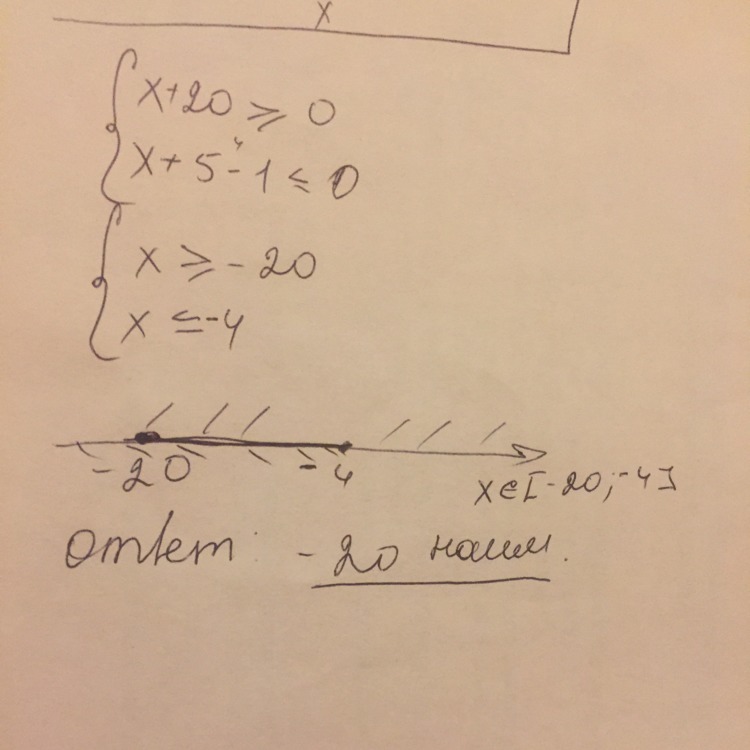 x
x+20 ⩾ 0
x+5-1 ≤ 0
x ⩾ -20
x ≤ -4
-20 -4
x∈[-20;-4]
Ответ: -20 наим.